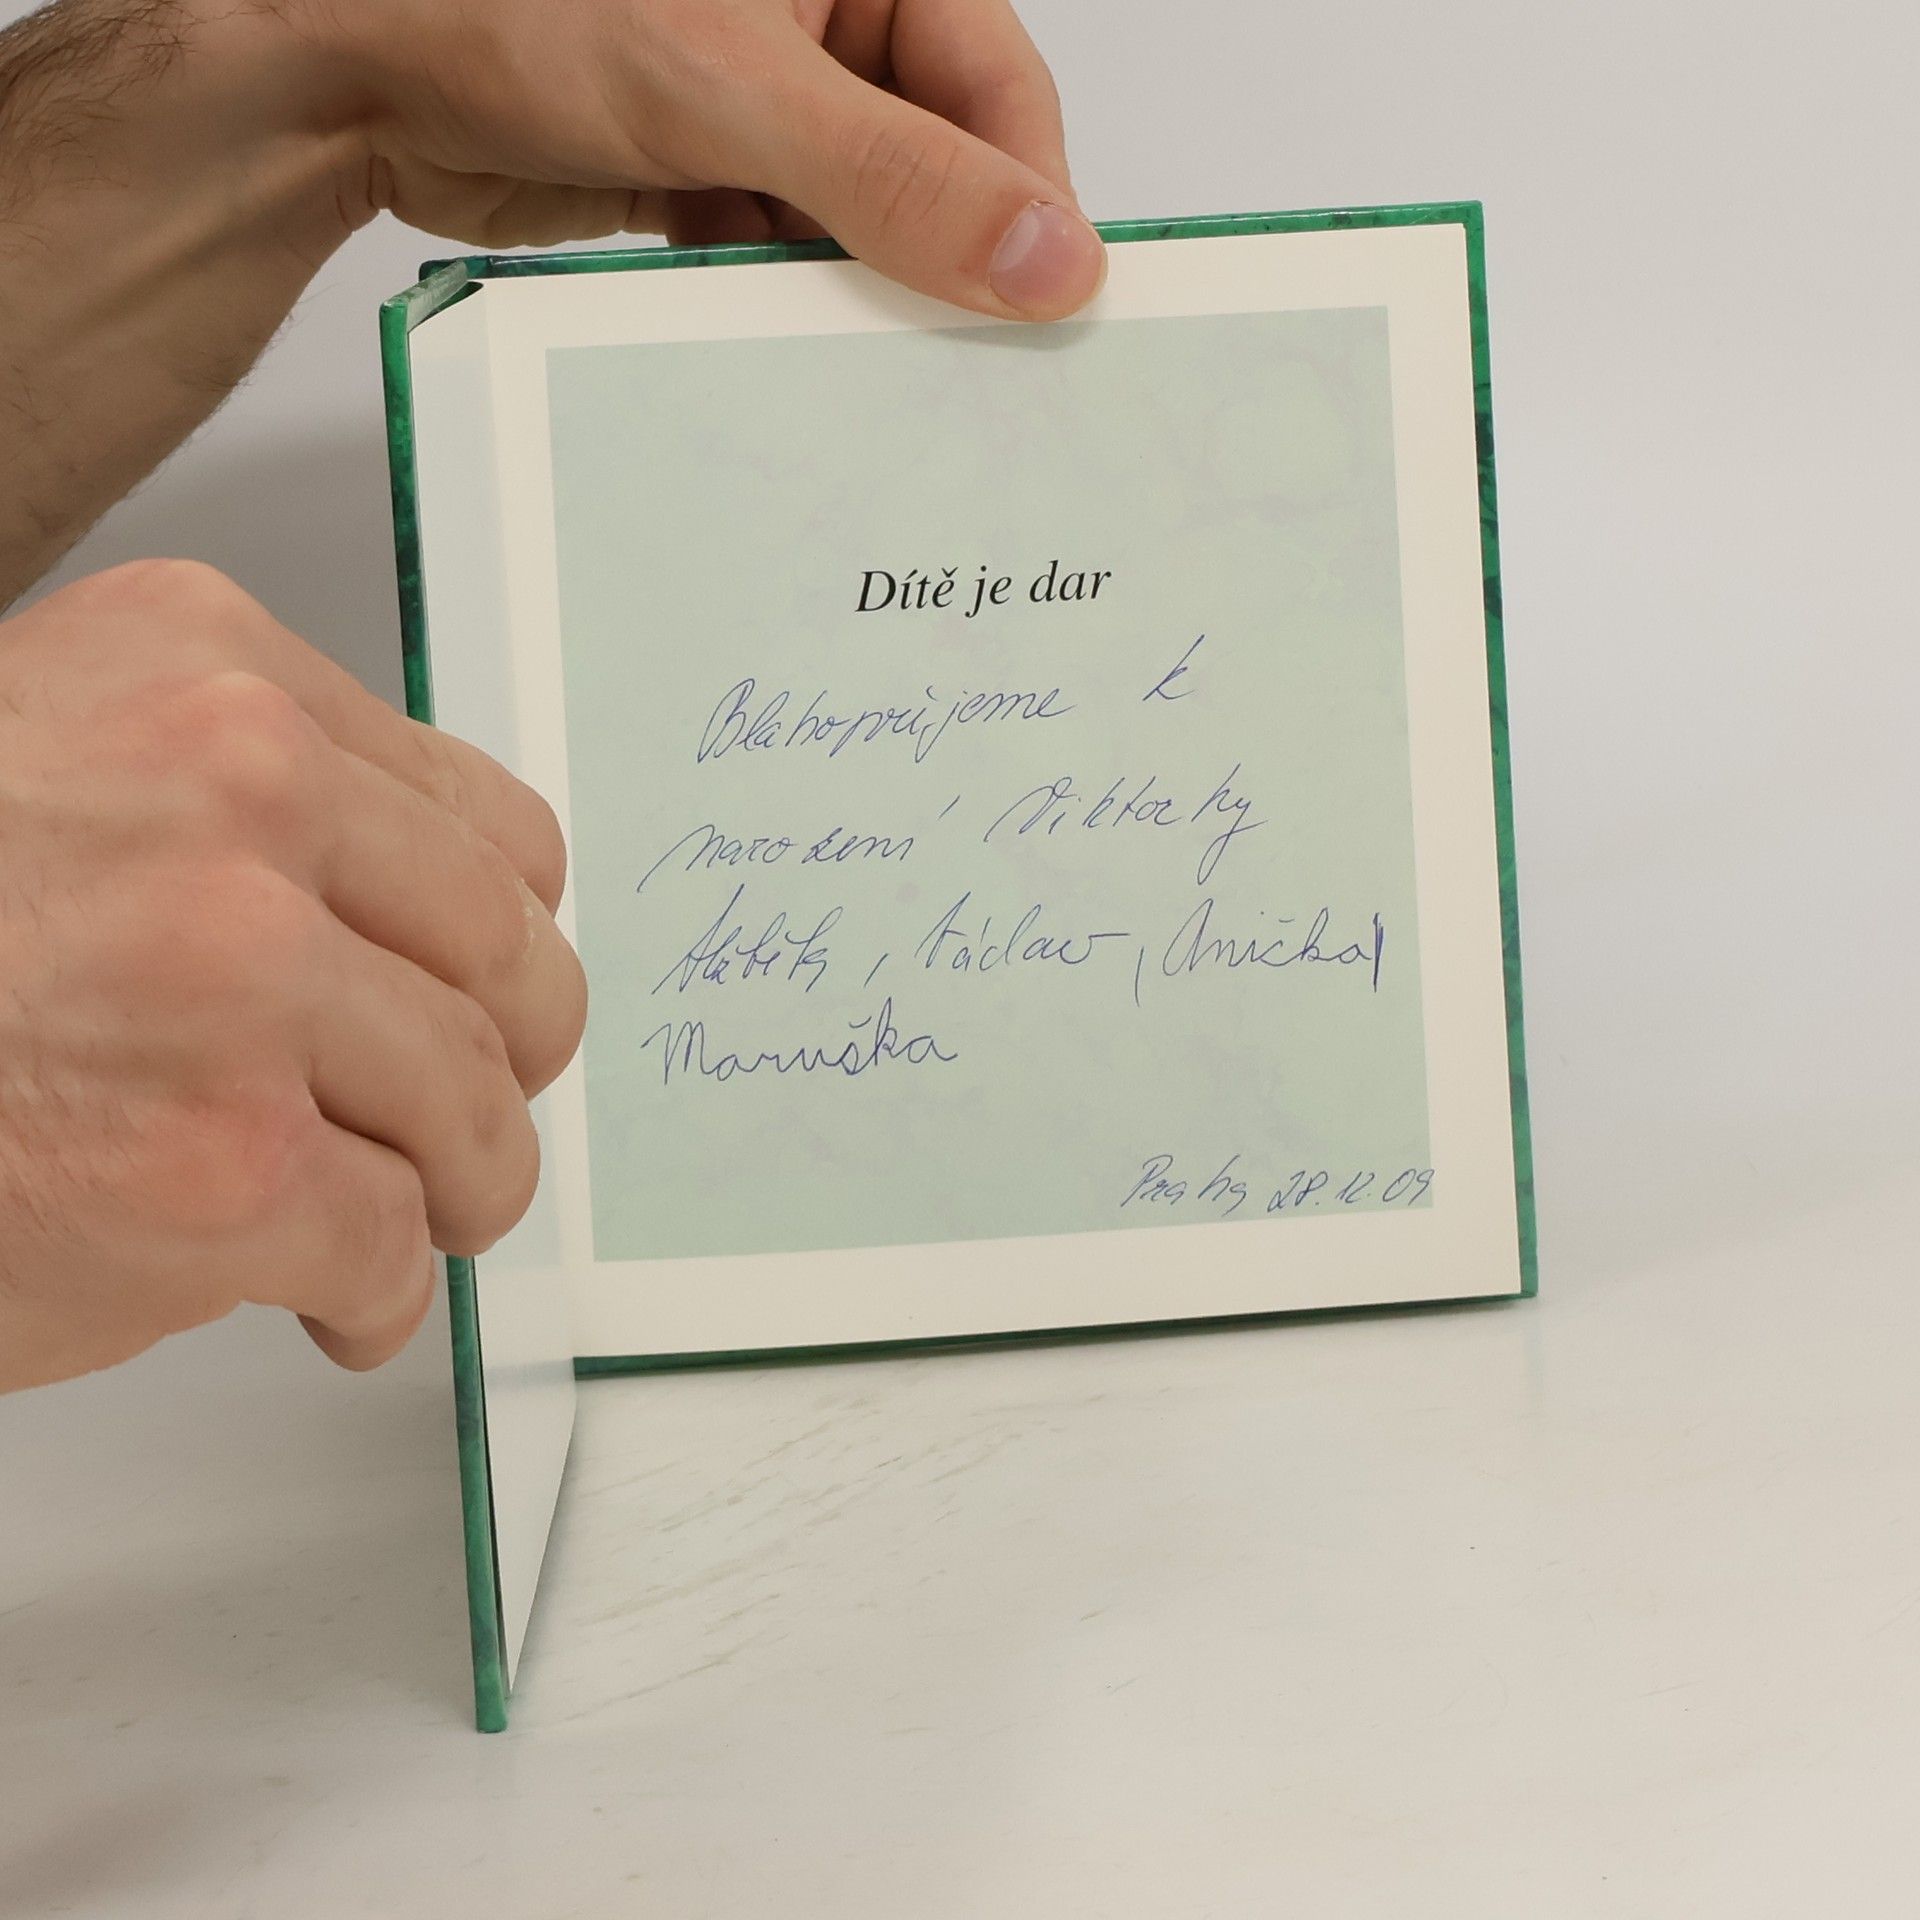 Dítě je dar
Blahopřejeme k
narození Viktorky
Alžběta, Václav, Anička,
Maruška
Praha 28.12.09